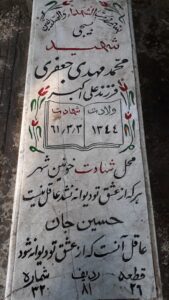 بسیجی
شهید
محمد مهدی جعفری
فرزند علی اکبر
ولادت شهادت
۱۳۴۴ ۶۱/۳/۳
محل شهادت خونین شهر
هر که از عشق تو دیوانه نشد عاقل نیست
حسین جان
عاقل آنست که از عشق تو دیوانه شود
قطعه ردیف شماره
۲۶ ۸۱ ۳۲